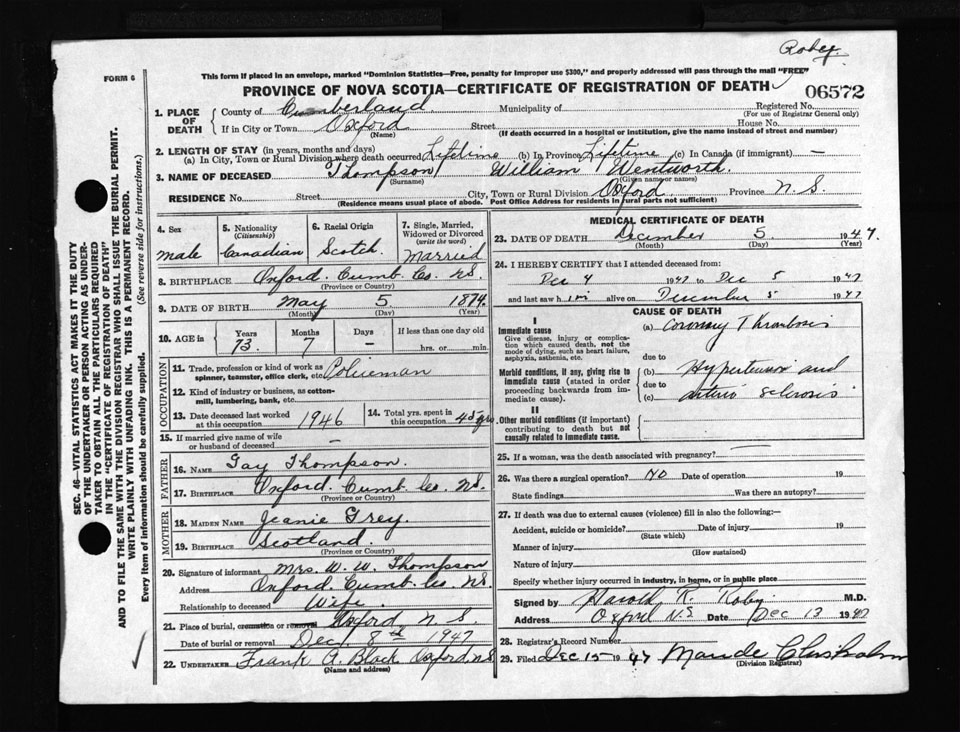 Robey.
FORM 6
This form if placed in an envelope, marked "Dominion Statistics—Free, penalty for improper use $300," and properly addressed will pass through the mail "FREE"
PROVINCE OF NOVA SCOTIA—CERTIFICATE OF REGISTRATION OF DEATH
06572
1. PLACE OF DEATH County of Cumberland Municipality of Registered No.
(For use of Registrar General only)
If in City or Town Oxford Street House No.
(Name) (If death occurred in a hospital or institution, give the name instead of street and number)
2. LENGTH OF STAY (in years, months and days)
(a) In City, Town or Rural Division where death occurred Lifetime (b) In Province Lifetime (c) In Canada (if immigrant) —
3. NAME OF DECEASED Thompson William Wentworth.
(Surname) (Given name or names)
RESIDENCE No. Street City, Town or Rural Division Oxford Province N.S.
(Residence means usual place of abode. Post Office Address for residents in rural parts not sufficient)
4. Sex 5. Nationality (Citizenship) 6. Racial Origin 7. Single, Married, Widowed or Divorced (write the word)
male Canadian Scotch Married
8. BIRTHPLACE Oxford. Cumb. Co. N.S.
(Province or Country)
9. DATE OF BIRTH May 5 1874.
(Month) (Day) (Year)
10. AGE in Years Months Days If less than one day old
73. 7 — hrs. or min.
OCCUPATION
11. Trade, profession or kind of work as spinner, teamster, office clerk, etc. Policeman
12. Kind of industry or business, as cotton-mill, lumbering, bank, etc.
13. Date deceased last worked at this occupation 1946 14. Total yrs. spent in this occupation 45 yrs.
15. If married give name of wife or husband of deceased —
FATHER
16. NAME Gay Thompson.
17. BIRTHPLACE Oxford. Cumb. Co. N.S.
(Province or Country)
MOTHER
18. MAIDEN NAME Jeanie Grey.
19. BIRTHPLACE Scotland.
(Province or Country)
20. Signature of informant Mrs. W. W. Thompson
Address Oxford. Cumb. Co. N.S.
Relationship to deceased Wife.
21. Place of burial, cremation or removal Oxford N.S.
Date of burial or removal Dec. 8th 1947
22. UNDERTAKER Frank A. Black Oxford, N.S.
(Name and address)
MEDICAL CERTIFICATE OF DEATH
23. DATE OF DEATH December 5 1947.
(Month) (Day) (Year)
24. I HEREBY CERTIFY that I attended deceased from:
Dec 4 1947 to Dec 5 1947
and last saw him alive on December 5 1947
CAUSE OF DEATH
I
Immediate cause
Give disease, injury or complication which caused death, not the mode of dying, such as heart failure, asphyxia, asthenia, etc.
(a) Coronary Thrombosis
due to
Morbid conditions, if any, giving rise to immediate cause (stated in order proceeding backwards from immediate cause).
(b) Hypertension and
due to
(c) arterio sclerosis
II
Other morbid conditions (if important) contributing to death but not causally related to immediate cause.
25. If a woman, was the death associated with pregnancy?
26. Was there a surgical operation? No Date of operation 19
State findings Was there an autopsy?
27. If death was due to external causes (violence) fill in also the following:—
Accident, suicide or homicide? Date of injury 19
(State which)
Manner of injury
(How sustained)
Nature of injury
Specify whether injury occurred in industry, in home, or in public place
Signed by Harold R. Roby M.D.
Address Oxford N.S Date Dec 13 1947
28. Registrar's Record Number
29. Filed Dec 15 1947 Maude Chisholm
(Division Registrar)
SEC. 46—VITAL STATISTICS ACT MAKES IT THE DUTY
OF THE UNDERTAKER OR PERSON ACTING AS UNDER-
TAKER TO OBTAIN ALL THE PARTICULARS REQUIRED
IN THE "CERTIFICATE OF REGISTRATION OF DEATH"
AND TO FILE THE SAME WITH THE DIVISION REGISTRAR WHO SHALL ISSUE THE BURIAL PERMIT.
WRITE PLAINLY WITH UNFADING INK. THIS IS A PERMANENT RECORD.
Every item of information should be carefully supplied. (See reverse side for instructions.)